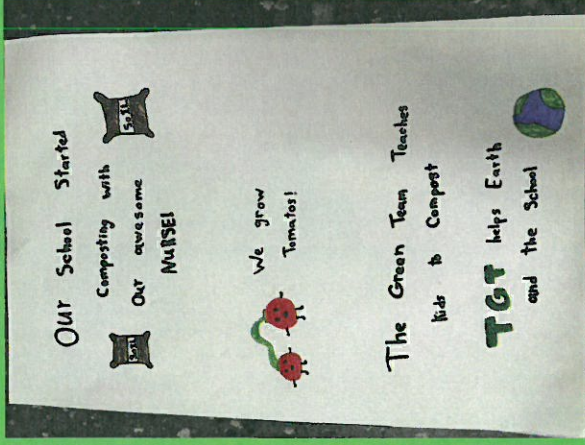 Our School Started
Composting with
Our awesome
NURSE!
Soil
Soil
We grow
Tomatos!
The Green Team Teaches
Kids to Compost
TGT helps Earth
and the School